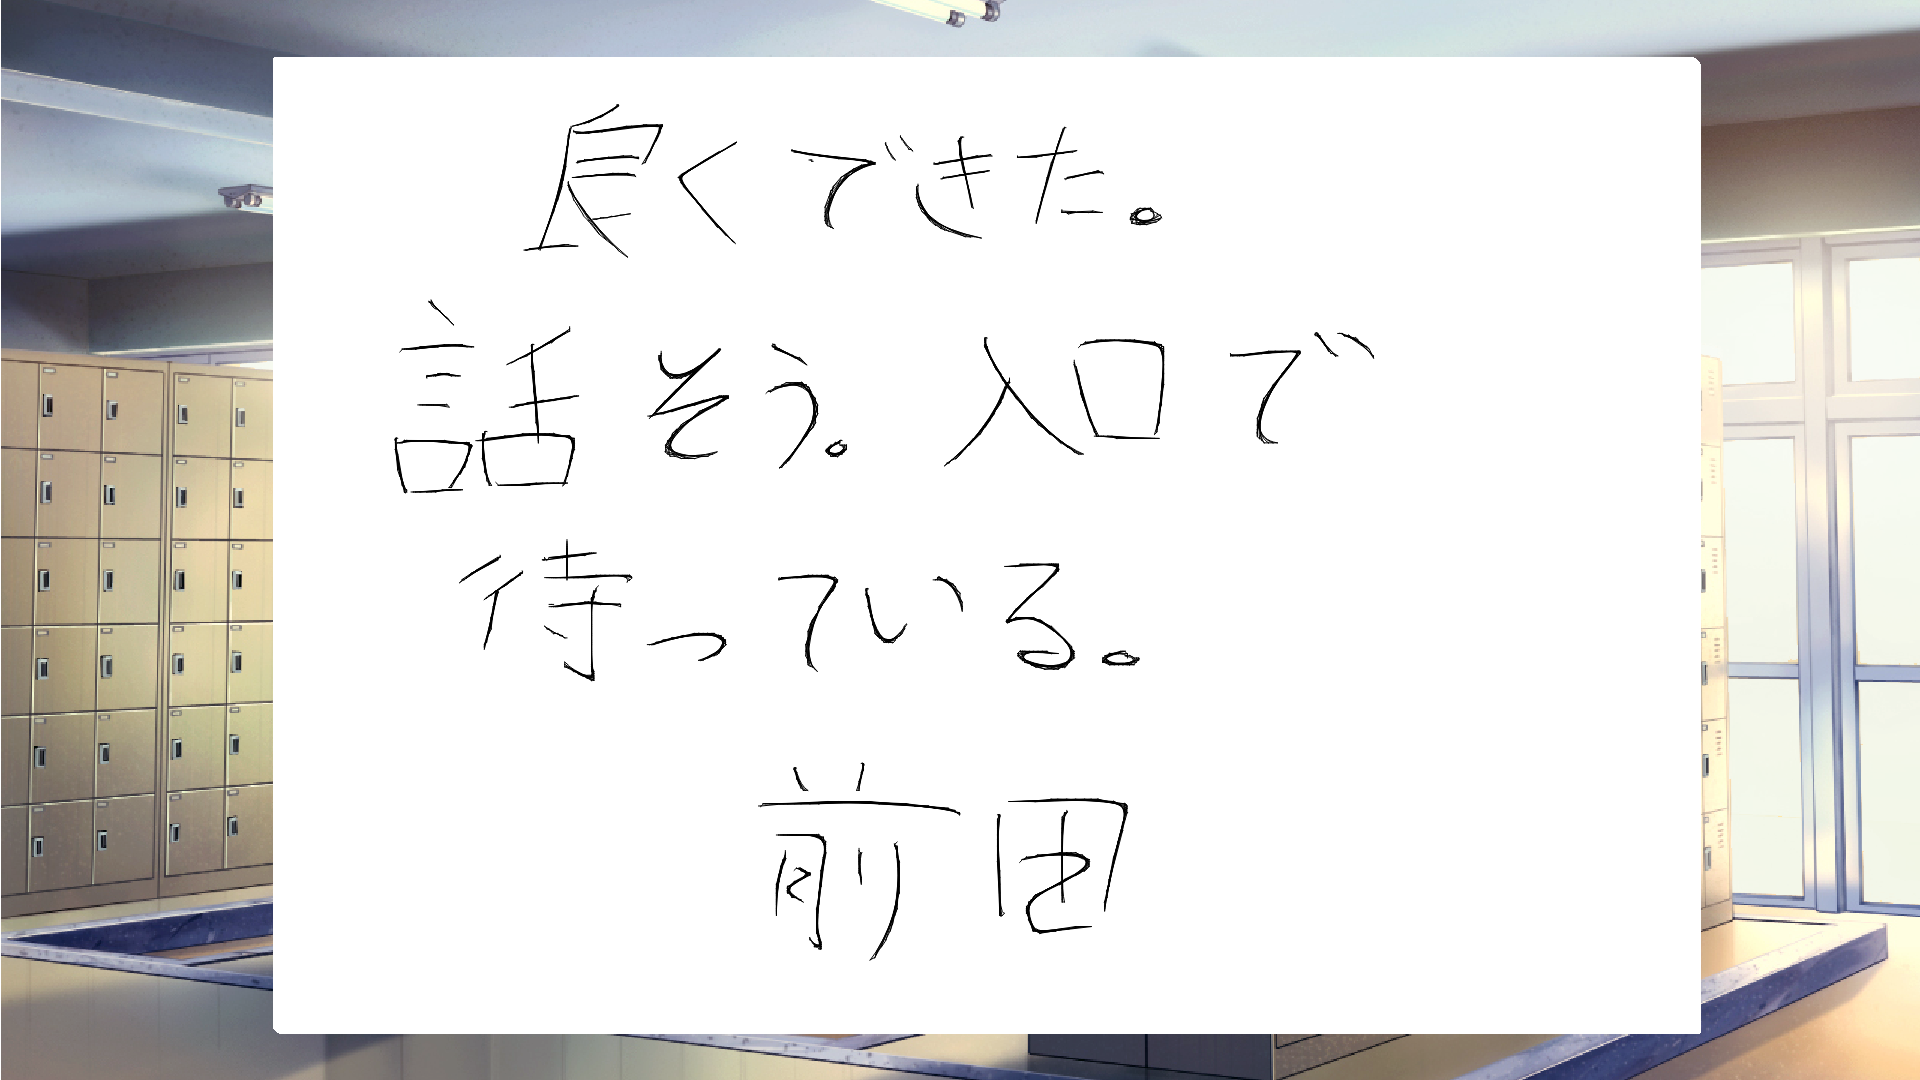 良くできた。
話そう。入口で
待っている。
前田